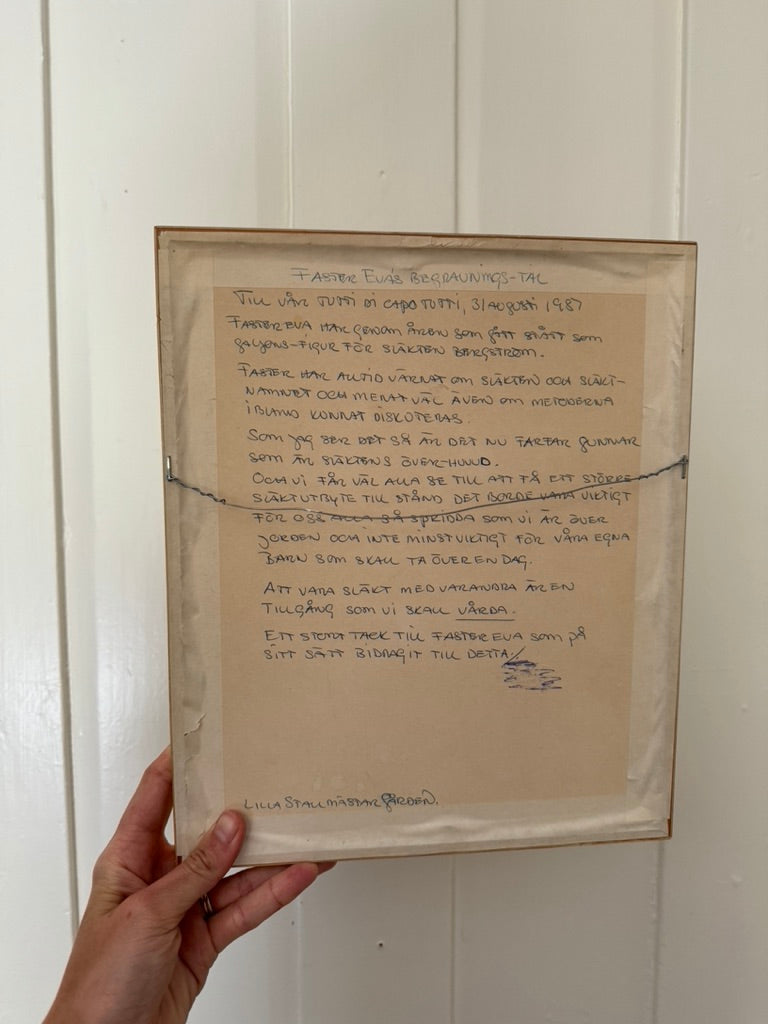 FASTER EVAS BEGRAVNINGS-TAL
TILL VÅR TUTTI DI CAPO TUTTI, 31 AUGUSTI 1987
FASTER EVA HAR GENOM ÅREN SOM GÅTT STÅTT SOM
GALJONS-FIGUR FÖR SLÄKTEN BERGSTRÖM.
FASTER HAR ALLTID VÄRNAT OM SLÄKTEN OCH SLÄKT-
NAMNET OCH MENAT VÄL ÄVEN OM METODERNA
IBLAND KUNNAT DISKUTERAS.
SOM JAG SER DET SÅ ÄR DET NU FARFAR GUNNAR
SOM ÄR SLÄKTENS ÖVER-HUVUD.
OCH VI FÅR VÄL ALLA SE TILL ATT FÅ ETT STÖRRE
SLÄKTUTBYTE TILL STÅND DET BORDE VARA VIKTIGT
FÖR OSS ALLA SÅ SPRIDDA SOM VI ÄR ÖVER
JORDEN OCH INTE MINST VIKTIGT FÖR VÅRA EGNA
BARN SOM SKALL TA ÖVER EN DAG.
ATT VARA SLÄKT MED VARANDRA ÄR EN
TILLGÅNG SOM VI SKALL VÅRDA.
ETT STORT TACK TILL FASTER EVA SOM PÅ
SITT SÄTT BIDRAGIT TILL DETTA.
LILLA STALLMÄSTARGÅRDEN.